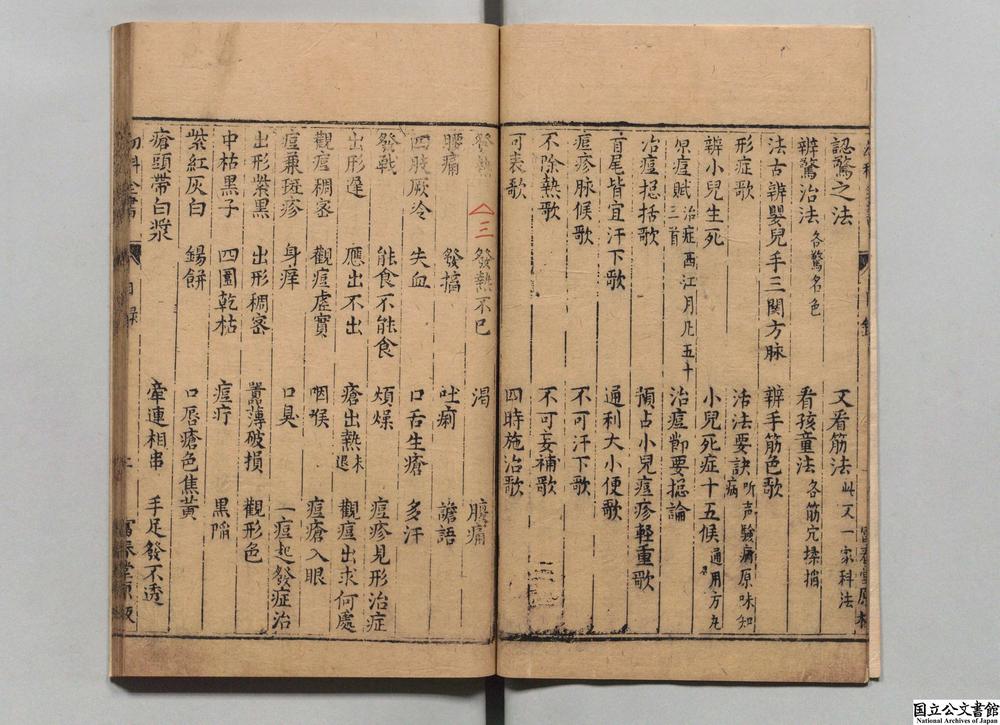 認驚之法 又看筋法 此又一家科法
辨驚治法 各驚名色 看孩童法 各筋穴揉搯
法古辨嬰兒手三関方脉 辨手筋色歌
形症歌 活法要訣 听声驗病原味知病
辨小兒生死 小兒死症十五候 通用方
原痘賦 治症西江月凡五十三首 治痘節要捴論
治痘捴括歌 預占小兒痘疹軽重歌
首尾皆宜汗下歌 通利大小便歌
痘疹脉候歌 不可汗下歌
不除熱歌 不可妄補歌
可表歌 四時施治歌
發熱 三 發熱不已 渴 腹痛
腰痛 發搐 吐痢 譫語
四肢厥冷 失血 口舌生瘡 多汗
發戰 能食不能食 煩燥 痘疹見形治症
出形遲 應出不出 瘡出熱未退 觀痘出求何處
觀痘稠密 觀痘虛實 咽喉 痘瘡入眼
痘兼斑疹 身痒 口臭 一痘起發症治
出形紫黑 出形稠密 薄破損 觀形色
中枯黒子 四圍乾枯 痘疔 黒陷
紫紅灰白 錫餅 口唇瘡色焦黄
瘡頭帶白漿 牽連相串 手足發不透
目録
国立公文書館
National Archives of Japan